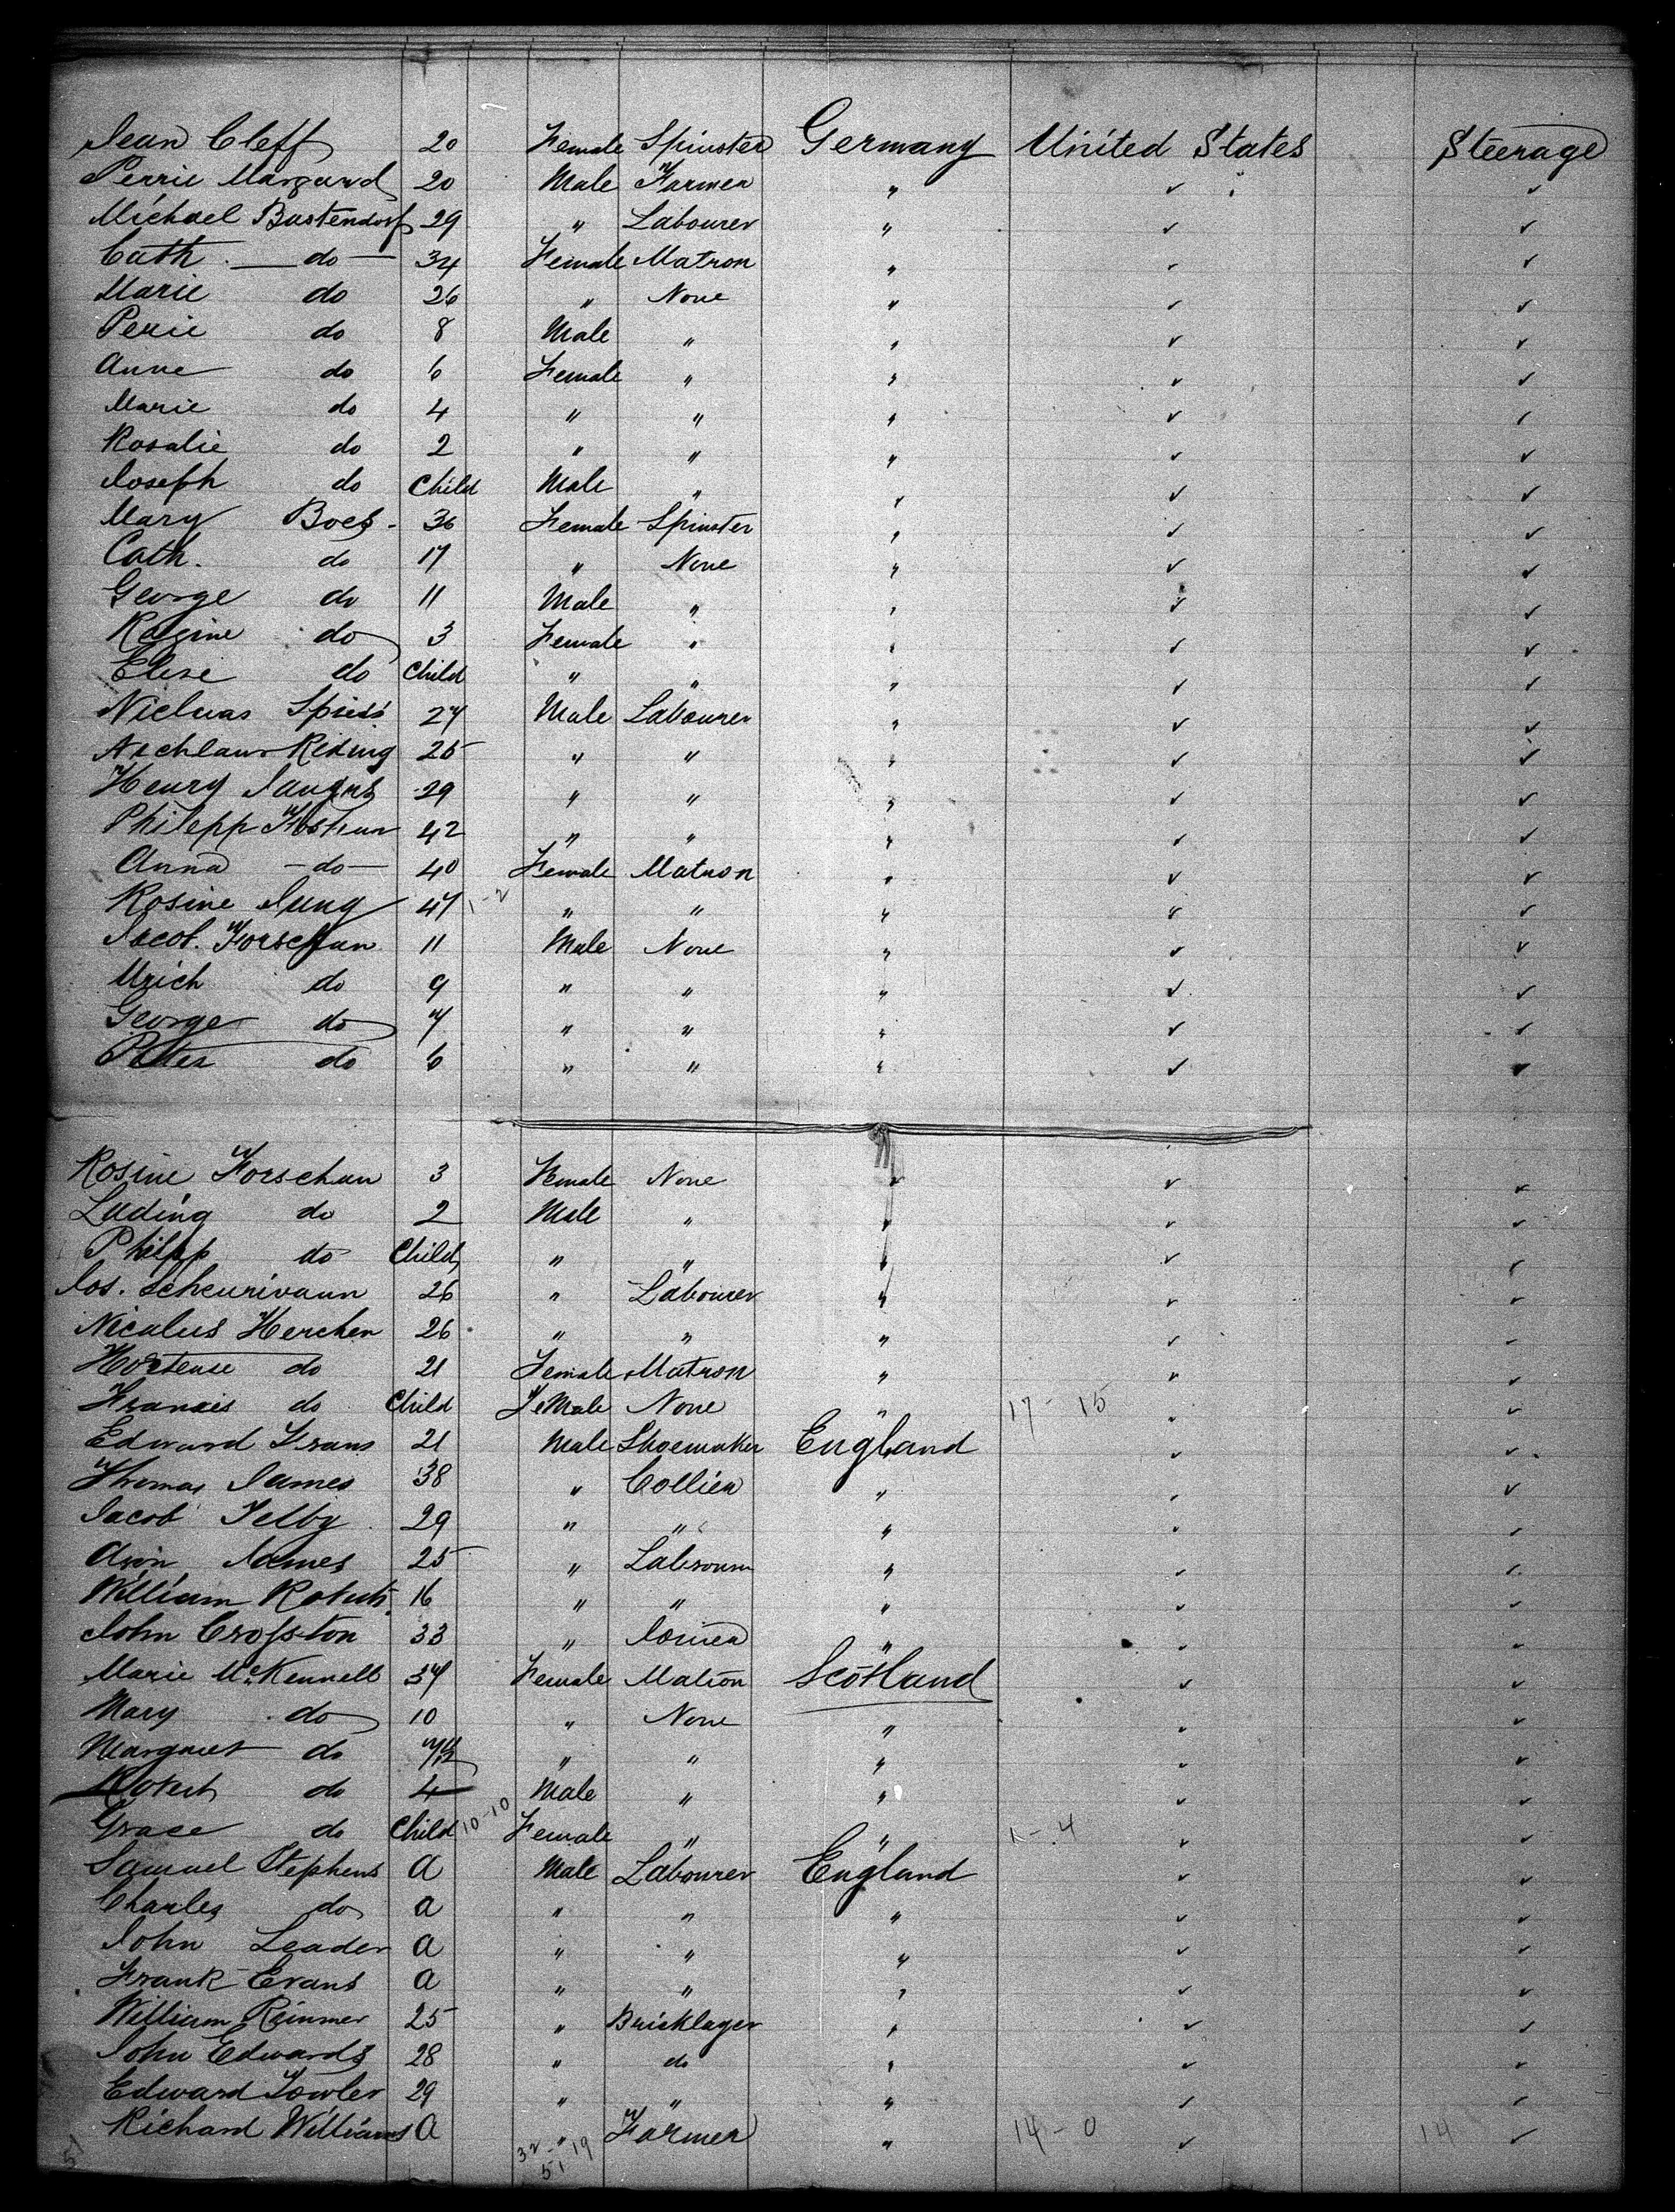 Jean Cleff 20 Female Spinster Germany United States Steerage
Perrie Margurd 20 Male Farmer " ✓ ✓
Michael Bastendorf 29 " Labourer " ✓ ✓
Cath. — do — 34 Female Matron " ✓ ✓
Marie do 26 " None " ✓ ✓
Perie do 8 Male " " ✓ ✓
Anne do 6 Female " " ✓ ✓
Marie do 4 " " " ✓ ✓
Rosalie do 2 " " " ✓ ✓
Joseph do Child Male " " ✓ ✓
Mary Boes - 36 Female Spinster " ✓ ✓
Cath. do 17 " None " ✓ ✓
George do 11 Male " " ✓ ✓
Regine do 3 Female " " ✓ ✓
Elise do Child " " " ✓ ✓
Nicluas Spiess 27 Male Labourer " ✓ ✓
Reding 25 " " " ✓ ✓
Henry 29 " " " ✓ ✓
Philepp 42 " " " ✓ ✓
Anna — do — 40 Female Matron " ✓ ✓
Rosine Jung 47 1-2 " " " ✓ ✓
Jacob. Forschun 11 Male None " ✓ ✓
Ulrich do 9 " " " ✓ ✓
George do 7 " " " ✓ ✓
Peter do 6 " " " ✓ ✓
Rosine Forschun 3 Female None " ✓ ✓
Luding do 2 Male " " ✓ ✓
Philpp do Child " " " ✓ ✓
Jos. 26 " Labourer " ✓ ✓
Nicalus Herchen 26 " " " ✓ ✓
Hortense do 21 Female Matron " ✓ ✓
Francis do Child FeMale None " 17-15 ✓ ✓
Edward Frans 21 Male Shoemaker England ✓ ✓
Thomas James 38 " Collier " ✓ ✓
Jacob Selby 29 " " " ✓ ✓
James 25 " Labourer " ✓ ✓
William Roberts 16 " " " ✓ ✓
John Croſston 33 " Joiner " ✓ ✓
Marie McKennell 37 Female Matron Scotland ✓ ✓
Mary do 10 " None " ✓ ✓
Margaret do " " " ✓ ✓
Robert do 4 Male " " ✓ ✓
Grace do Child 10-10 Female " " 1-4 ✓ ✓
Samuel Stephens a Male Labourer England ✓ ✓
Charles do a " " " ✓ ✓
John Leader a " " " ✓ ✓
Frank Evans a " " " ✓ ✓
William Rimmer 25 " Bricklayer " ✓ ✓
John Edwards 28 " do " ✓ ✓
Edward Fowler 29 " " " ✓ ✓
Richard Williams a " Farmer " 14-0 ✓ 14 ✓
51 32-19
51